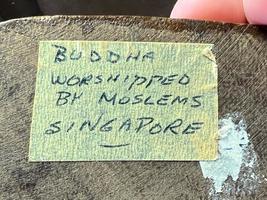 BUDDHA
WORSHIPPED
BY MOSLEMS
SINGAPORE